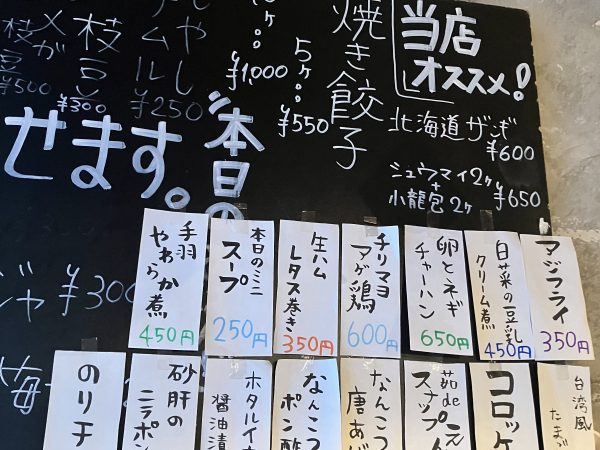 当店
オススメ!
北海道ザンギ
¥600
シュウマイ2ヶ
+
小龍包2ヶ
¥650
焼き餃子
5ヶ
¥550
¥1,000
もやし
ナムル
¥250
枝豆
¥300
豆
¥500
本日の
せます。
ジャ
¥300
梅
アジフライ
350円
白菜の豆乳
クリーム煮
450円
卵とネギ
チャーハン
650円
チリマヨ
アゲ鶏
600円
生ハム
レタス巻き
350円
本日のミニ
スープ
250円
手羽
やわらか煮
450円
台湾風
たまご
コロッケ
茹de
スナップえん
なんこつ
唐あげ
なんこつ
ポン酢
ホタルイカ
醤油漬
砂肝の
ニラポン
のりチ